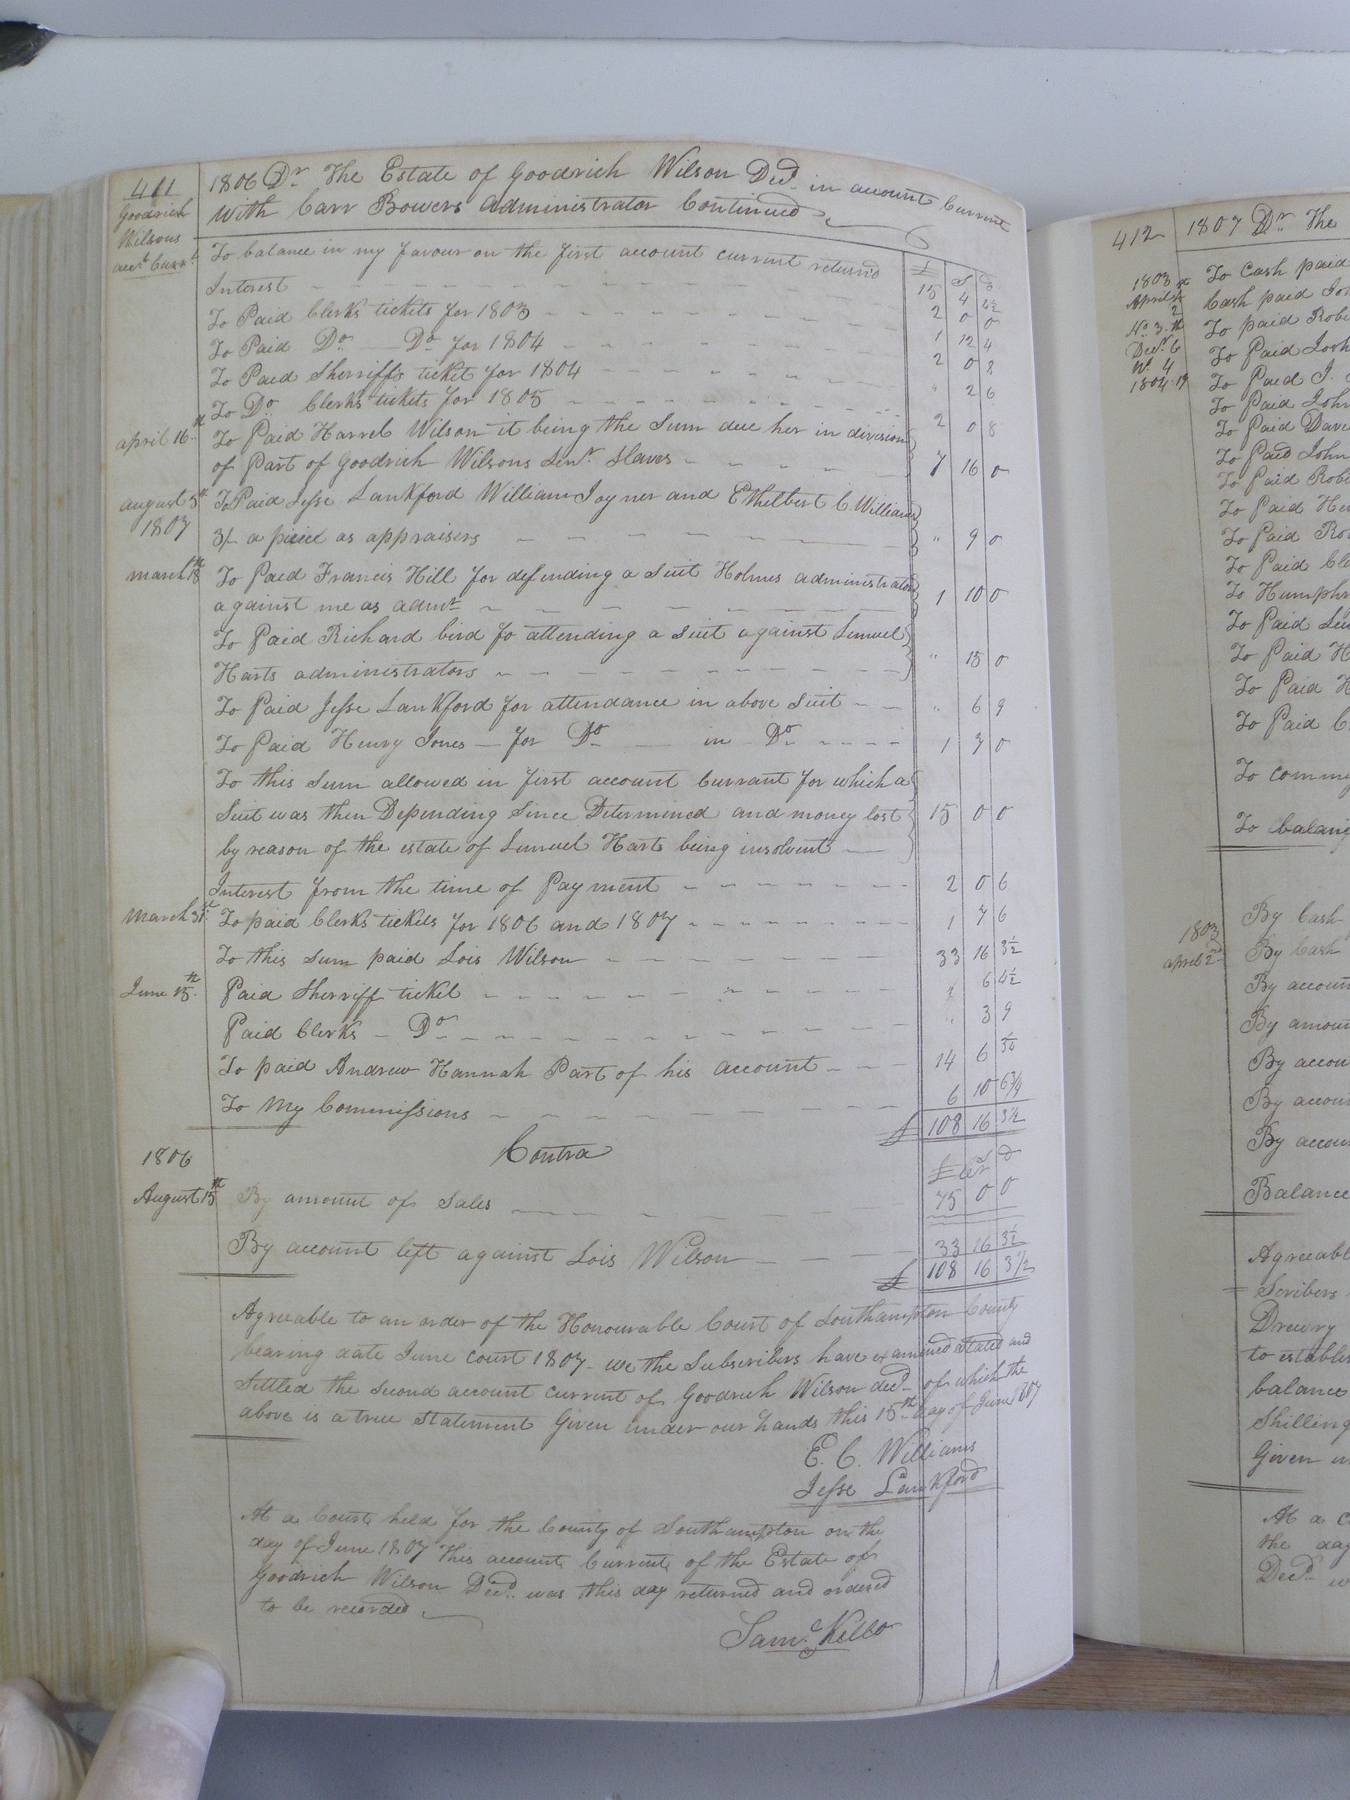 411
Goodrich
Wilsons
acct. Curr.t
1806 Dr The Estate of Goodrich Wilson Decd. in account Current
With Carr Bowers administrator Continued
£ S D
To balance in my favour on the first account current returnd 15 4 6½
Interest 2 0 0
To Paid Clerks tickets for 1803 1 12 4
To Paid Do. Do. for 1804 2 0 8
To Paid Sherriffs ticket for 1804 " 2 6
To Do. Clerks tickets for 1805 2 0 8
april 16th To Paid Harrel Wilson it being the Sum due her in division
of Part of Goodrich Wilsons Senr. Slaves 7 16 0
august 5th To Paid Jesse Lankford William Joyner and Ethelbert C. Williams
1807 3/ a piece as appraisers " 9 0
march 18th To Paid Francis Hill for defending a Suit Holmes administrator
against me as admr. 1 10 0
To Paid Richard bird fo attending a Suit against Lemuel
Harts administrators " 15 0
To Paid Jesse Lankford for attendance in above Suit " 6 9
To Paid Henry Jones for Do. in Do. 1 7 0
To this Sum allowed in first account Currant for which a
Suit was then Depending Since Determined and money lost 15 0 0
by reason of the estate of Lemuel Harts being insolvent
Interest from the time of Payment 2 0 6
March 31st. To paid Clerks tickets for 1806 and 1807 1 7 6
To this Sum paid Lois Wilson 33 16 3½
June 15th. Paid Sherriff ticket " 6 4½
Paid Clerks Do. " 3 9
To paid Andrew Hannah Part of his account 14 6
To My Commissions 6 10 6¾
£ 108 16 3½
Contra
1806
August 15th By amount of Sales 75 0 0
By account left against Lois Wilson 33 16 3½
£ 108 16 3½
Agreeable to an order of the Honourable Court of Southampton County
bearing date June court 1807 we the Subscribers have examined Stated and
Settled the second account current of Goodrich Wilson decd. of which the
above is a true Statement Given under our hands this 15th. day of June 1807
E. C. Williams
Jesse Lankford
At a Court held for the County of Southampton on the
day of June 1807 This account Current of the Estate of
Goodrich Wilson Decd. was this day returned and ordered
to be recorded
Saml. Kello
412 1807 Dr. The
1803
April
2
No. 3
Decr. 6
No. 4
1804
To Cash paid
Cash paid
To paid Robe
To Paid Josh
To Paid J.
To Paid John
To Paid Dave
To Paid John
To Paid Robe
To Paid He
To Paid Ro
To Paid Cl
To Humphr
To Paid
To Paid H
To Paid H
To Paid C
To comm
To balanc
1803
april 2nd
By Cash
By Cash
By accoun
By amoun
By accou
By accou
By accou
Balance
Agreeabl
Scribers
Drewry
to establis
balance
Shilling
Given u
At a C
the day
Decd. w